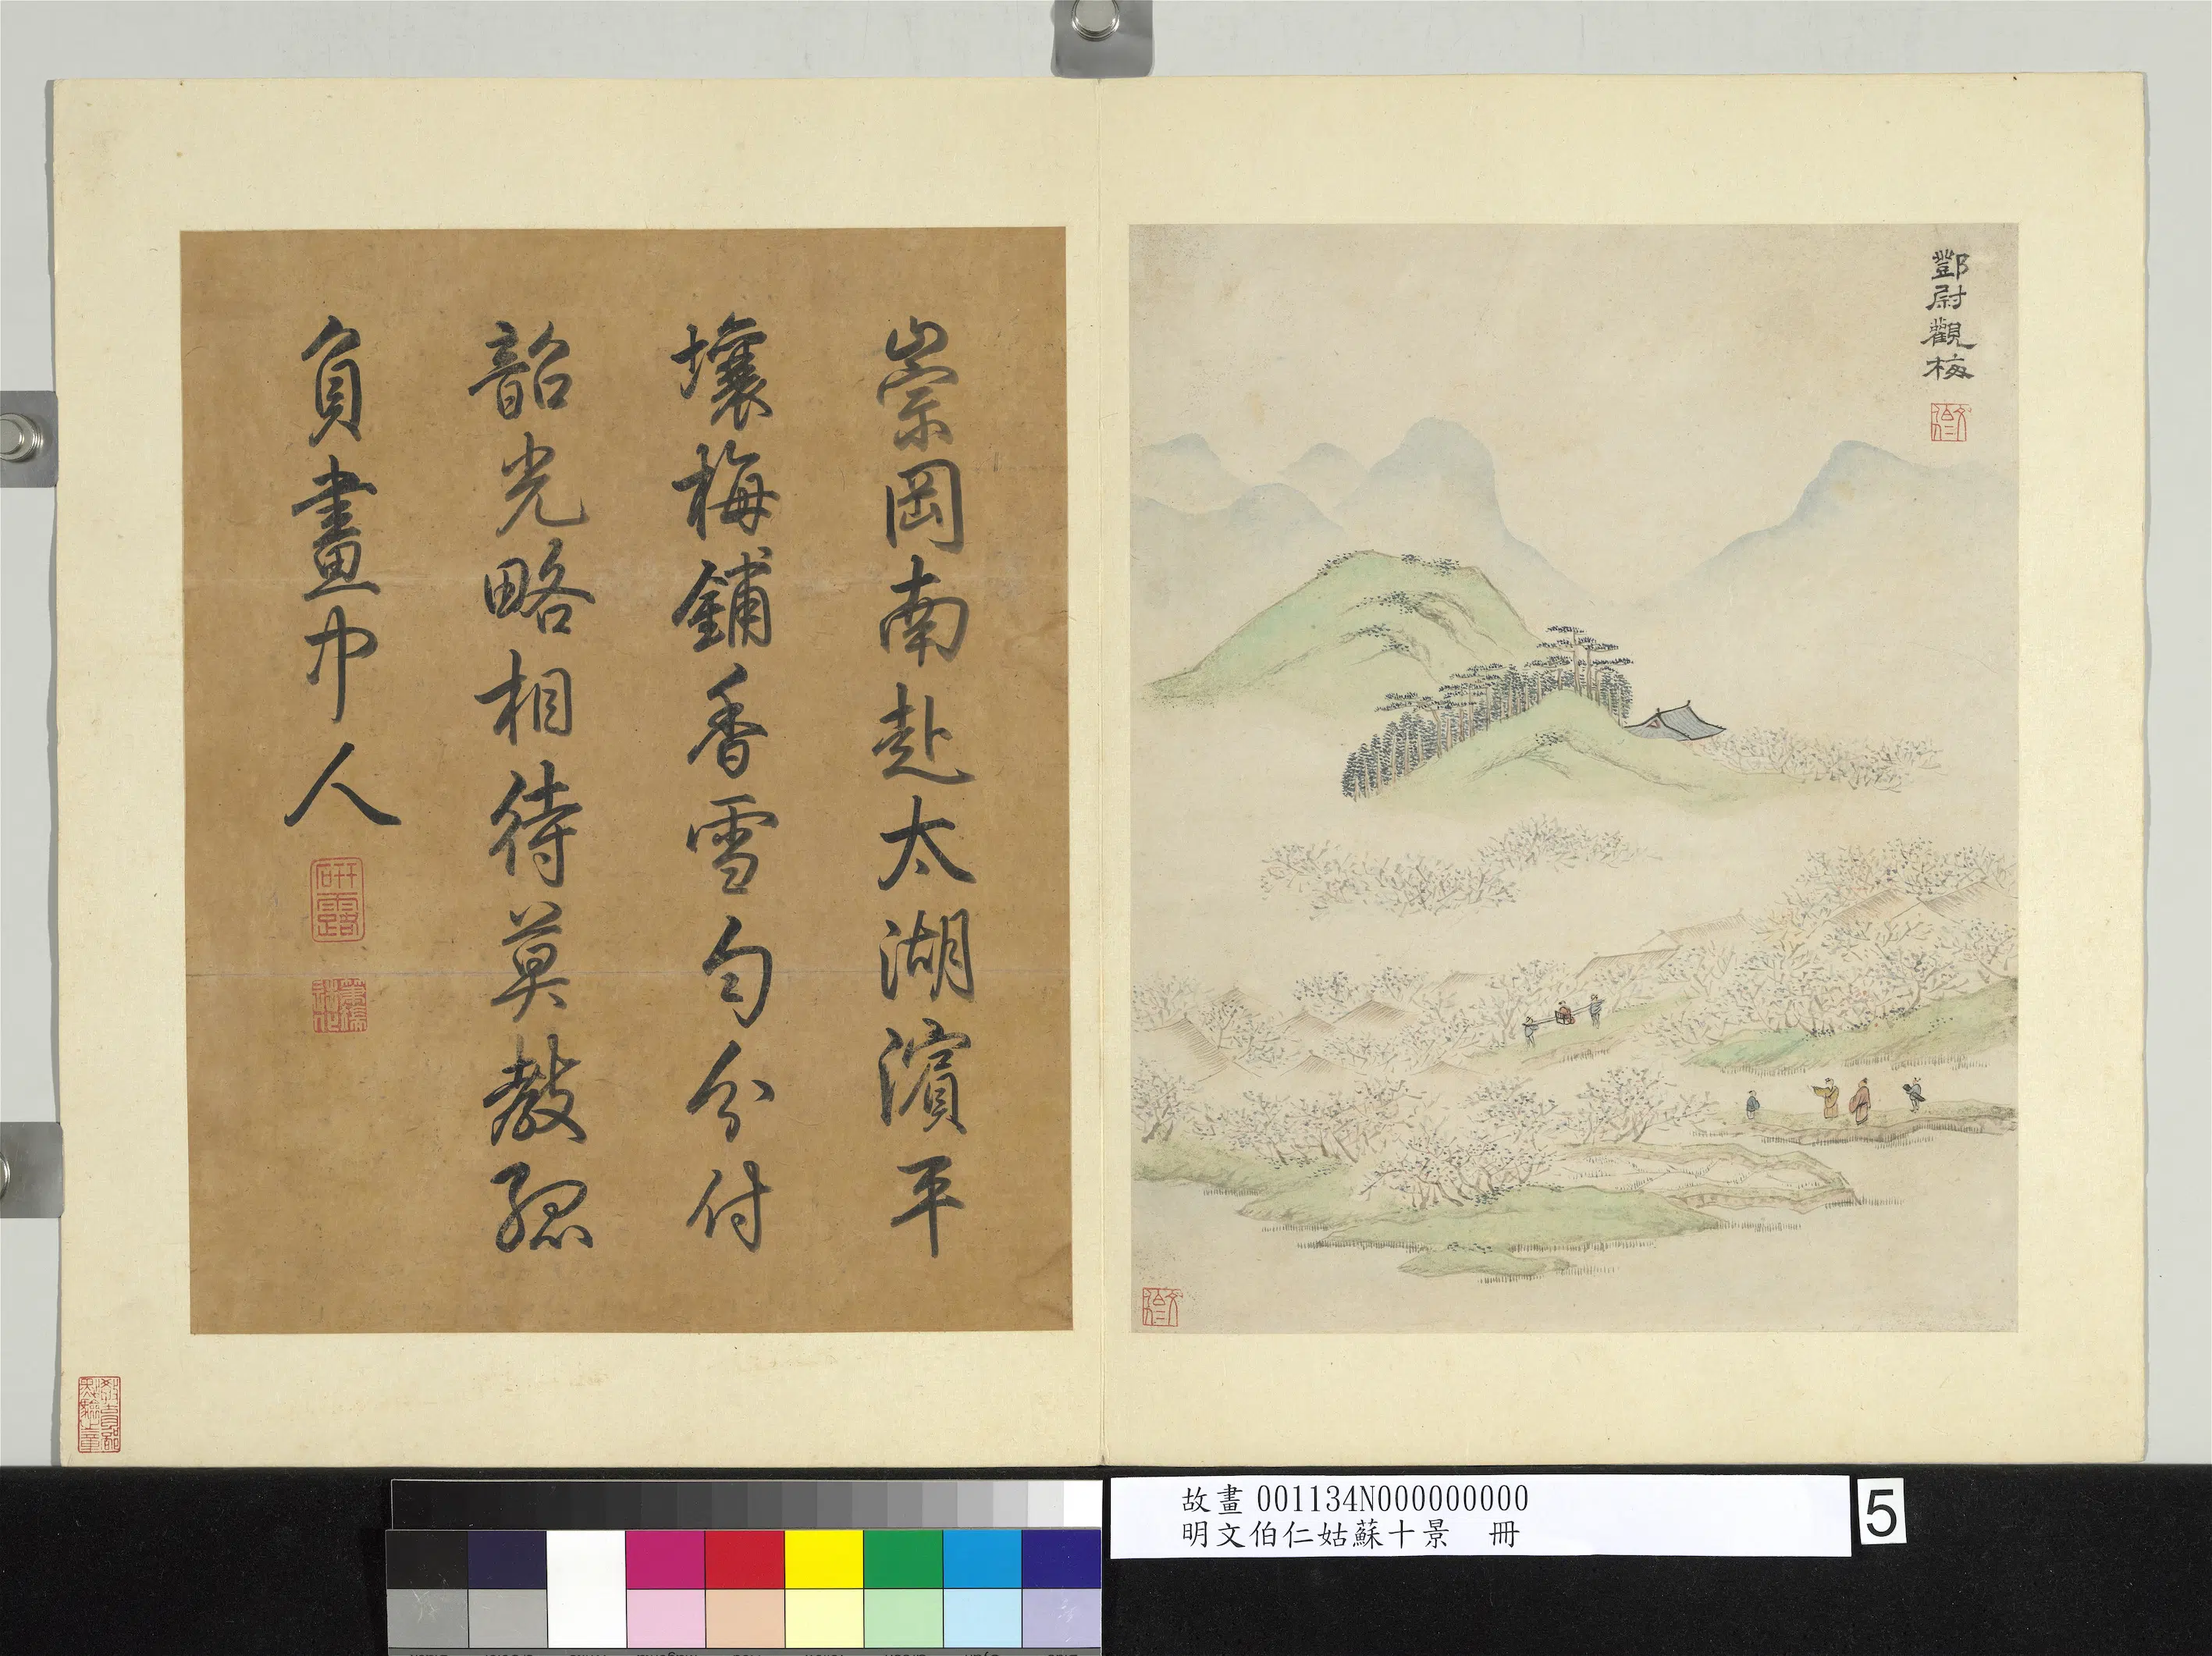 鄧尉觀梅
崇岡南赴太湖濱平
壤梅鋪香雪勻分付
韶光略相待莫教孤
負畫中人
研露
故畫 001134N000000000
明文伯仁姑蘇十景 冊
5